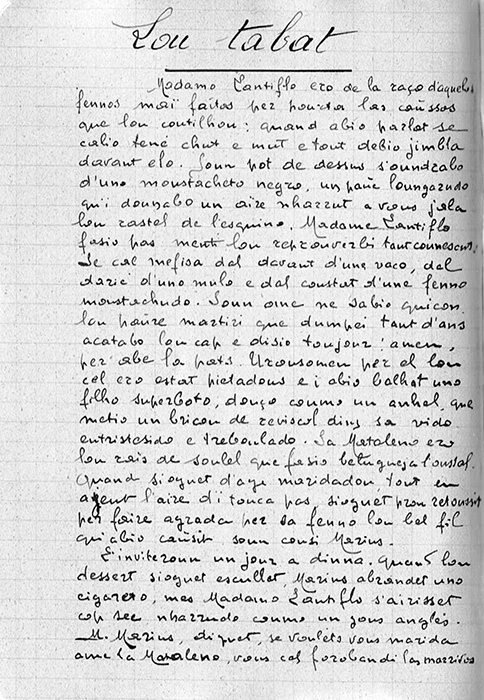 Lou tabat
Madamo Lantiflo ero de la raço d'aquelos
fennos maï faitos per pourta las caüssos
que lou coutilhou : quand abio parlat se
calio tené chut e mut e tout debio jimbla
davant elo. Soun pot de dessus s'oundrabo
d'uno moustacheto negro, un paüc loungarudo
qu'i dounabo un aire nharrut a vous jala
lou rastel de l'esquino. Madame Lantiflo
fasio pas menti lou reprouverbi tant counescut :
Se cal mefisa dal davant d'uno vaco, dal
darié d'uno mulo e dal coustat d'uno fenno
moustachudo. Soun ome ne sabio quicon.
lou paüre martiri que dumpeï tant d'ans
acatabo lou cap e disio toujour : amen,
per abe la pats. Urousomen per el lou
cel ero estat pietadous e i abio balhat uno
filho superboto, douço coumo un anhel, que
metio un bricou de reviscol dins sa vido
entristesido e treboulado. La Mataleno ero
lou rais de soulel que fasio belugueja l'oustal.
Quand sioguet d'age maridadou tout en
agent l'aire d'i touca pas, sioguet prou retoussit
per faire agrada per sa fenno lou bel fil
qu'abio caüsit soun cousi Marius.
L'inviteroun un jour a dinna. Quand lou
dessert sioguet escullet, Marius abrandet uno
cigareto, mes Madamo Lantiflo s'airisset
cop sec nharrudo coumo un gous anglés.
M. Marius, diguet, se voulets vous marida
ame la Mataleno, vous cal forobandi las marridos